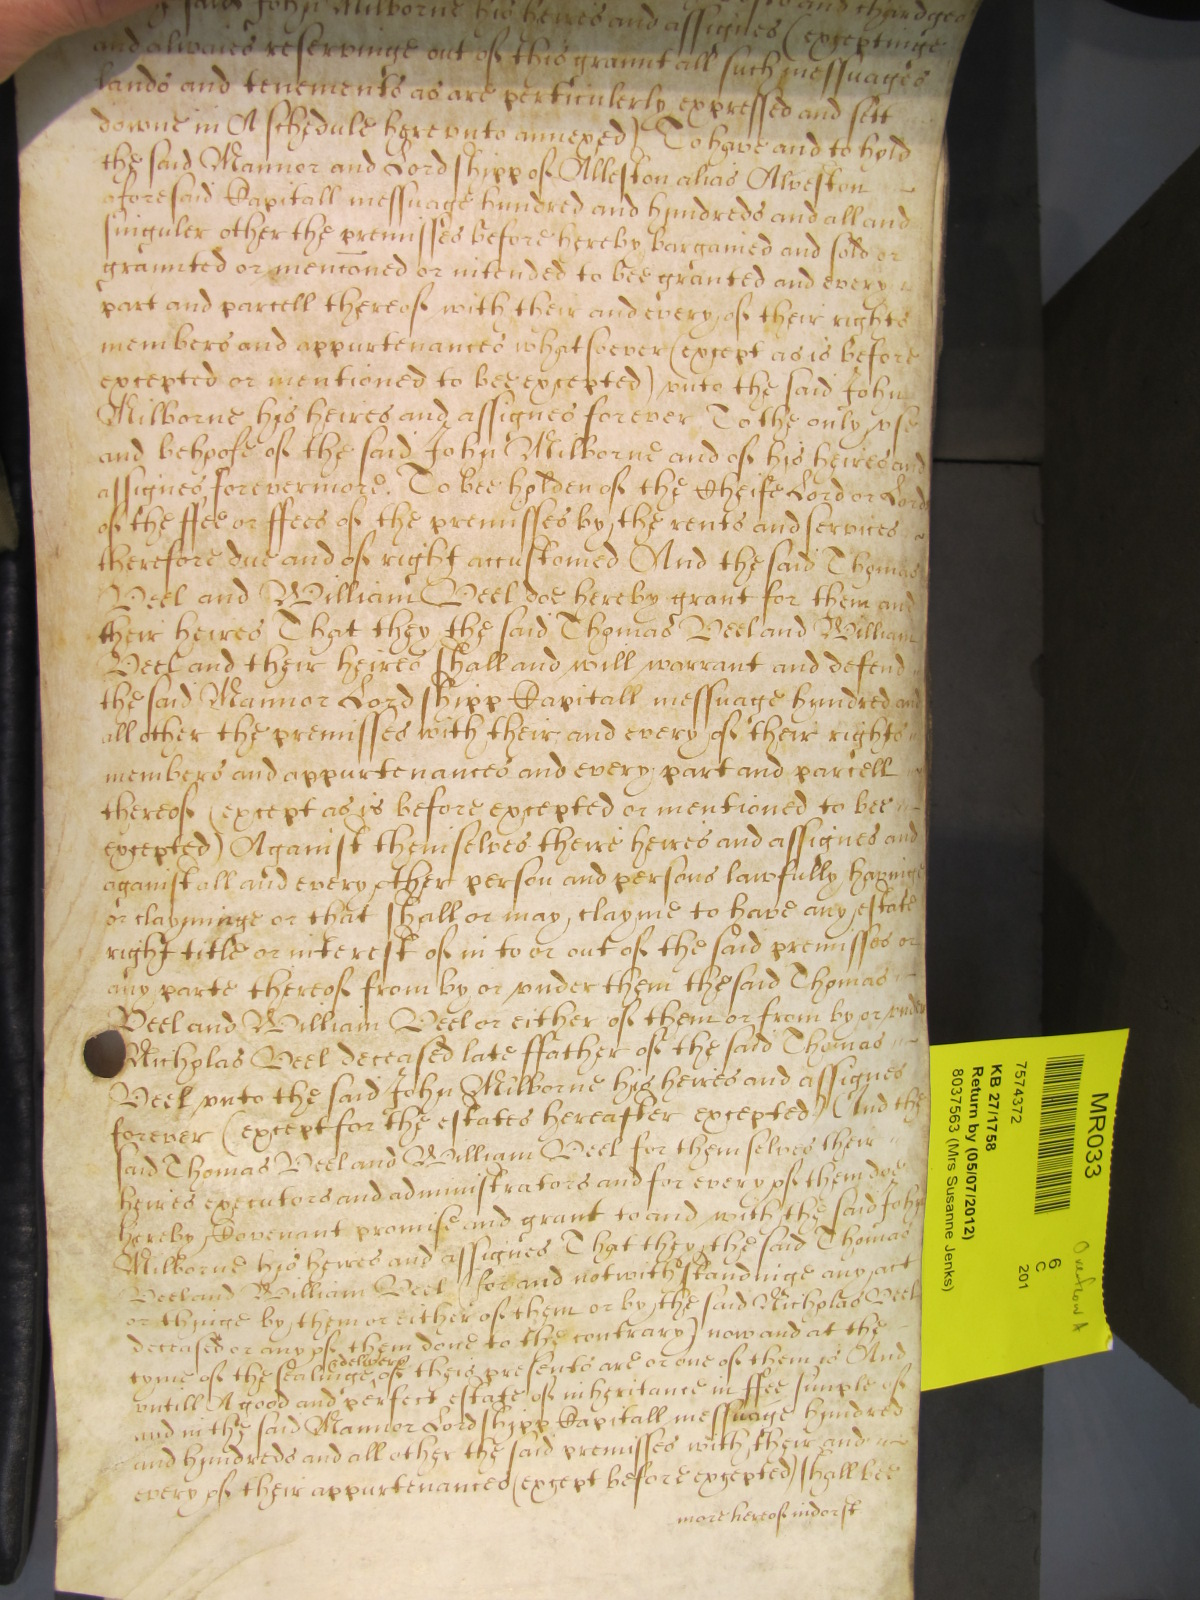 said John Milborne his heires and assignes (exceptinge
and alwaies reservinge out of this graunt all such messuages
lands and tenements as are perticulerly expressed and sett
downe in A schedule hereunto annexed) To have and to hold
the said Mannor and Lordshipp of Alleston alias Alveston
aforesaid Capitall messuage hundred and hundreds and all and
singuler other the premisses before hereby bargained and sold or
graunted or mencioned or intended to bee granted and every
part and parcell thereof with their and every of their rights
members and appurtenances whatsoever (except as is before
excepted or mentioned to bee excepted) unto the said John
Milborne his heires and assignes forever To the only use
and behoofe of the said John Milborne and of his heires and
assignes forevermore. To bee holden of the Cheife Lord or Lords
of the ffee or ffees of the premisses by the rents and services
therefore due and of right accustomed And the said Thomas
Veel and William Veel doe hereby grant for them and
their heires That they the said Thomas Veel and William
Veel and their heires shall and will warrant and defend
the said Mannor Lordshipp Capitall messuage hundred and
all other the premisses with their and every of their rights
members and appurtenances and every part and parcell
thereof (except as is before excepted or mentioned to bee
excepted) Against themselves theire heires and assignes and
against all and every other person and persons lawfully havinge
or clayminge or that shall or may clayme to have any estate
right title or interest of in to or out of the said premisses or
any parte thereof from by or under them the said Thomas
Veel and William Veel or either of them or from by or under
Nicholas Veel deceased late ffather of the said Thomas
Veel unto the said John Milborne his heires and assignes
forever (except for the estates hereafter excepted) And the
said Thomas Veel and William Veel for themselves their
heires executors and administrators and for every of them doe
hereby Covenant promise and grant to and with the said John
Milborne his heires and assignes That they the said Thomas
Veel and William Veel (for and notwithstandinge any act
or thinge by them or either of them or by the said Nicholas Veel
deceased or any of them done to the contrary) now and at the
& delivery
tyme of the sealinge of theis presents are or one of them is And
untill A good and perfect estate of inheritance in ffee simple of
and in the said Mannor Lordshipp Capitall messuage hundred
and hundreds and all other the said premisses with their and
every of their appurtenances (except before excepted) shall bee
more hereof indorst
MR033
7574372
KB 27/1758
Return by (05/07/2012)
8037563 (Mrs Susanne Jenks)
6
C
201